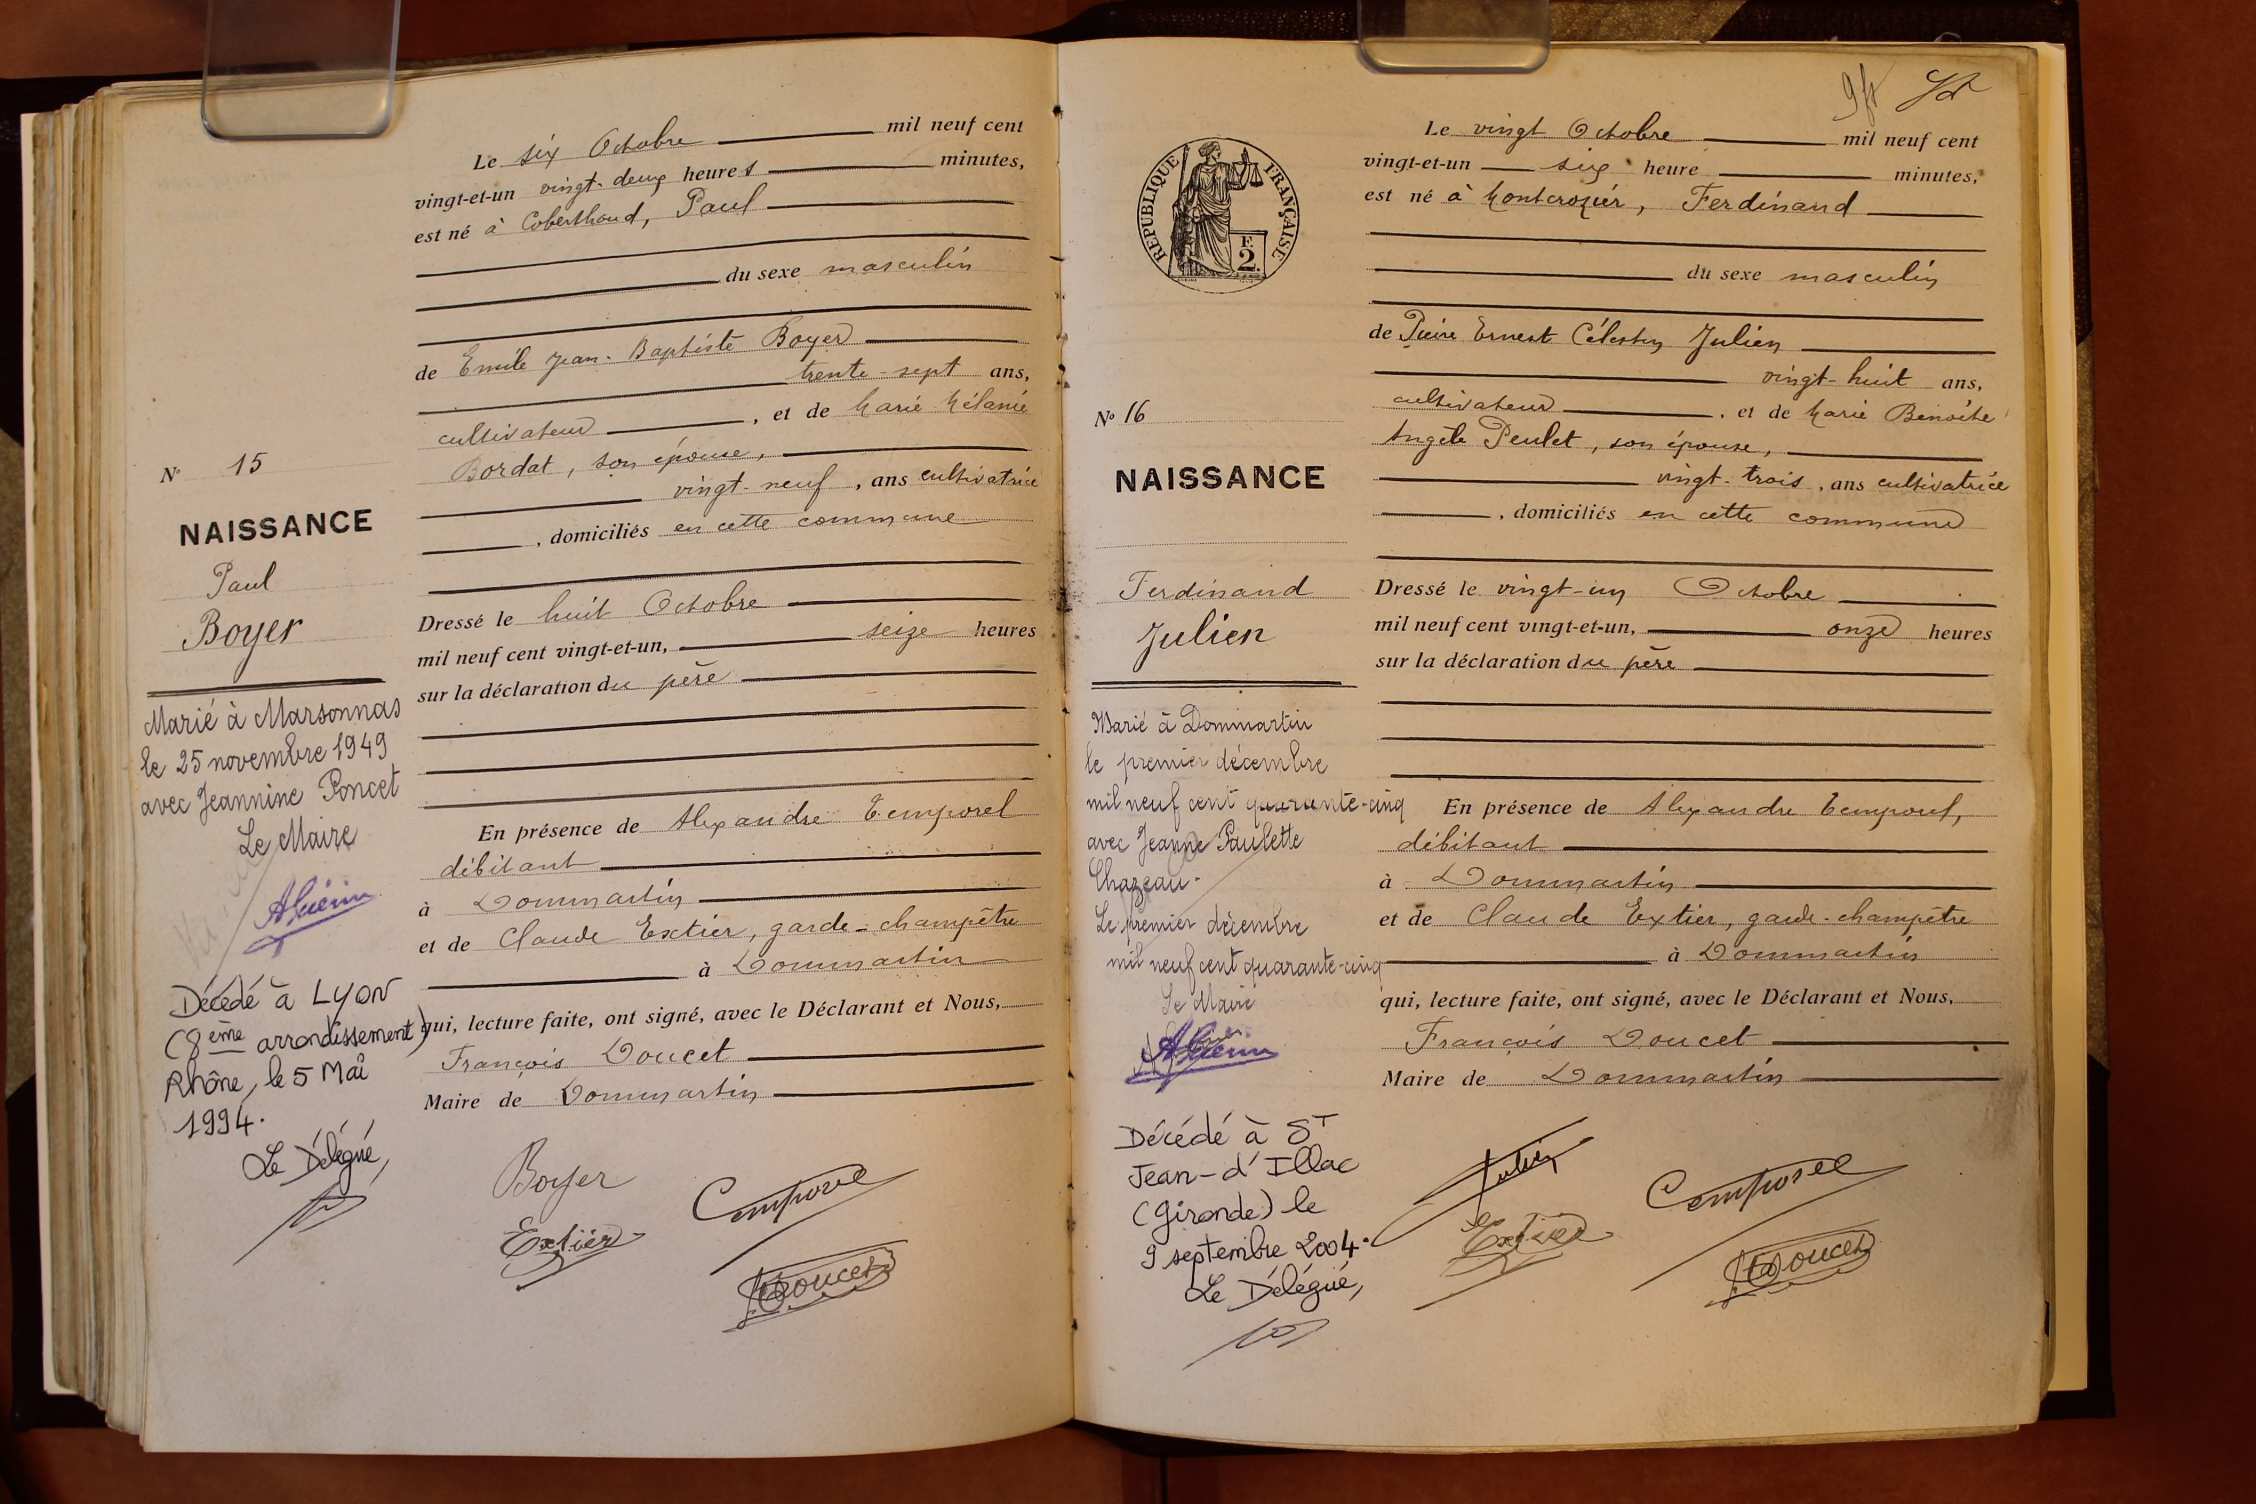 Le six Octobre mil neuf cent
vingt-et-un vingt-deux heures minutes,
est né à Coberthoud, Paul
du sexe masculin
de Emile Jean-Baptiste Boyer
trente-sept ans,
cultivateur, et de Marie Mélanie
Bordat, son épouse,
vingt-neuf, ans cultivatrice
, domiciliés en cette commune
Dressé le huit Octobre
mil neuf cent vingt-et-un, seize heures
sur la déclaration du père
En présence de Alexandre Temporel
débitant
à Dommartin
et de Claude Extier, garde-champêtre
à Dommartin
qui, lecture faite, ont signé, avec le Déclarant et Nous,
François Doucet
Maire de Dommartin
Boyer
Temporel
Extier
Doucet
N° 15
NAISSANCE
Paul
Boyer
Marié à Marsonnas
le 25 novembre 1949
avec Jeannine Poncet
Le Maire
AGuérin
Décédé à LYON
(8eme arrondissement)
Rhône, le 5 Mai
1994.
Le Délégué,
RÉPUBLIQUE FRANÇAISE
F.
2.
N° 16
NAISSANCE
Ferdinand
Julien
Marié à Dommartin
le premier décembre
mil neuf cent quarante-cinq
avec Jeanne Paulette
Chazeau.
Le premier décembre
mil neuf cent quarante-cinq
Le Maire
AGuérin
Décédé à ST
Jean-d'Illac
(Gironde) le
9 septembre 2004.
Le Délégué,
Le vingt Octobre mil neuf cent
vingt-et-un six heure minutes,
est né à Montcrozier, Ferdinand
du sexe masculin
de Pierre Ernest Célestin Julien
vingt-huit ans,
cultivateur, et de Marie Benoîte
Angèle Peulet, son épouse,
vingt-trois, ans cultivatrice
, domiciliés en cette commune
Dressé le vingt-un Octobre
mil neuf cent vingt-et-un, onze heures
sur la déclaration du père
En présence de Alexandre Temporel,
débitant
à Dommartin
et de Claude Extier, garde-champêtre
à Dommartin
qui, lecture faite, ont signé, avec le Déclarant et Nous,
François Doucet
Maire de Dommartin
Julien
Temporel
Extier
Doucet